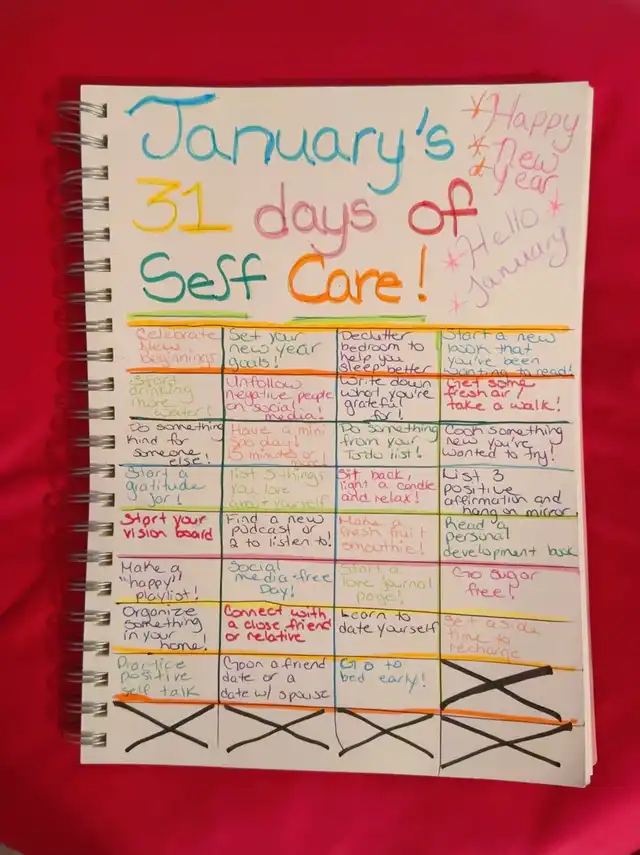 January's
31 days of
Self Care!
* Happy
* New
* Year
Hello *
* January
*
Celebrate
New
beginnings
Set your
new year
goals!
Declutter
bedroom to
help you
sleep better
Start a new
book that
you've been
wanting to read!
Start
drinking
more
water!
Unfollow
negative people
on social
media!
Write down
what you're
grateful
for!
Get some
fresh air/
take a walk!
Do something
kind for
someone
else!
Have a mini
spa day!
15 minutes or
more!
Do something
from your
To do list!
Cook something
new you've
wanted to try!
Start a
gratitude
jar!
List 5 things
you love
about yourself
Sit back,
light a candle
and relax!
List 3
positive
affirmation and
hang on mirror
Start your
vision board
Find a new
podcast or
2 to listen to!
Make a
fresh fruit
smoothie!
Read a
personal
development book
Make a
"happy"
playlist!
Social
media-free
Day!
Start a
love journal
page!
Go sugar
free!
Organize
something
in your
home!
Connect with
a close friend
or relative
Learn to
date yourself
Set aside
time to
recharge
Practice
positive
self talk
Go on a friend
date or a
date w/ spouse
Go to
bed early!